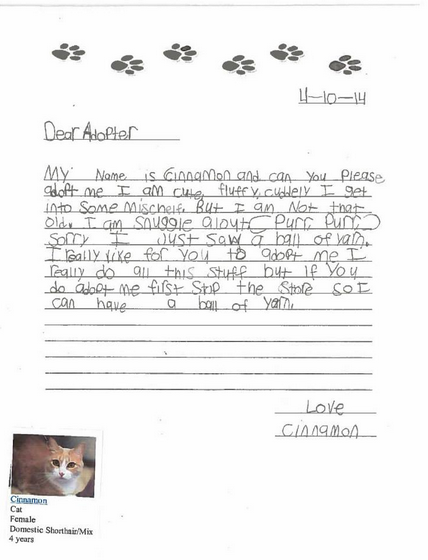 4-10-14
Dear Adopter
My Name is Cinnamon and can you Please
adopt me I am cute, fluffy, cuddely I get
into Some Mischeif. But I am Not that
old. I am Snuggle alout (Purr, Purr)
Sorry I Just Saw a ball of yarn.
I really like for you to adopt me I
really do all this Stuff but if you
do adopt me first Stop the Store so I
can have a ball of yarn.
Love
Cinnamon
Cinnamon
Cat
Female
Domestic Shorthair/Mix
4 years